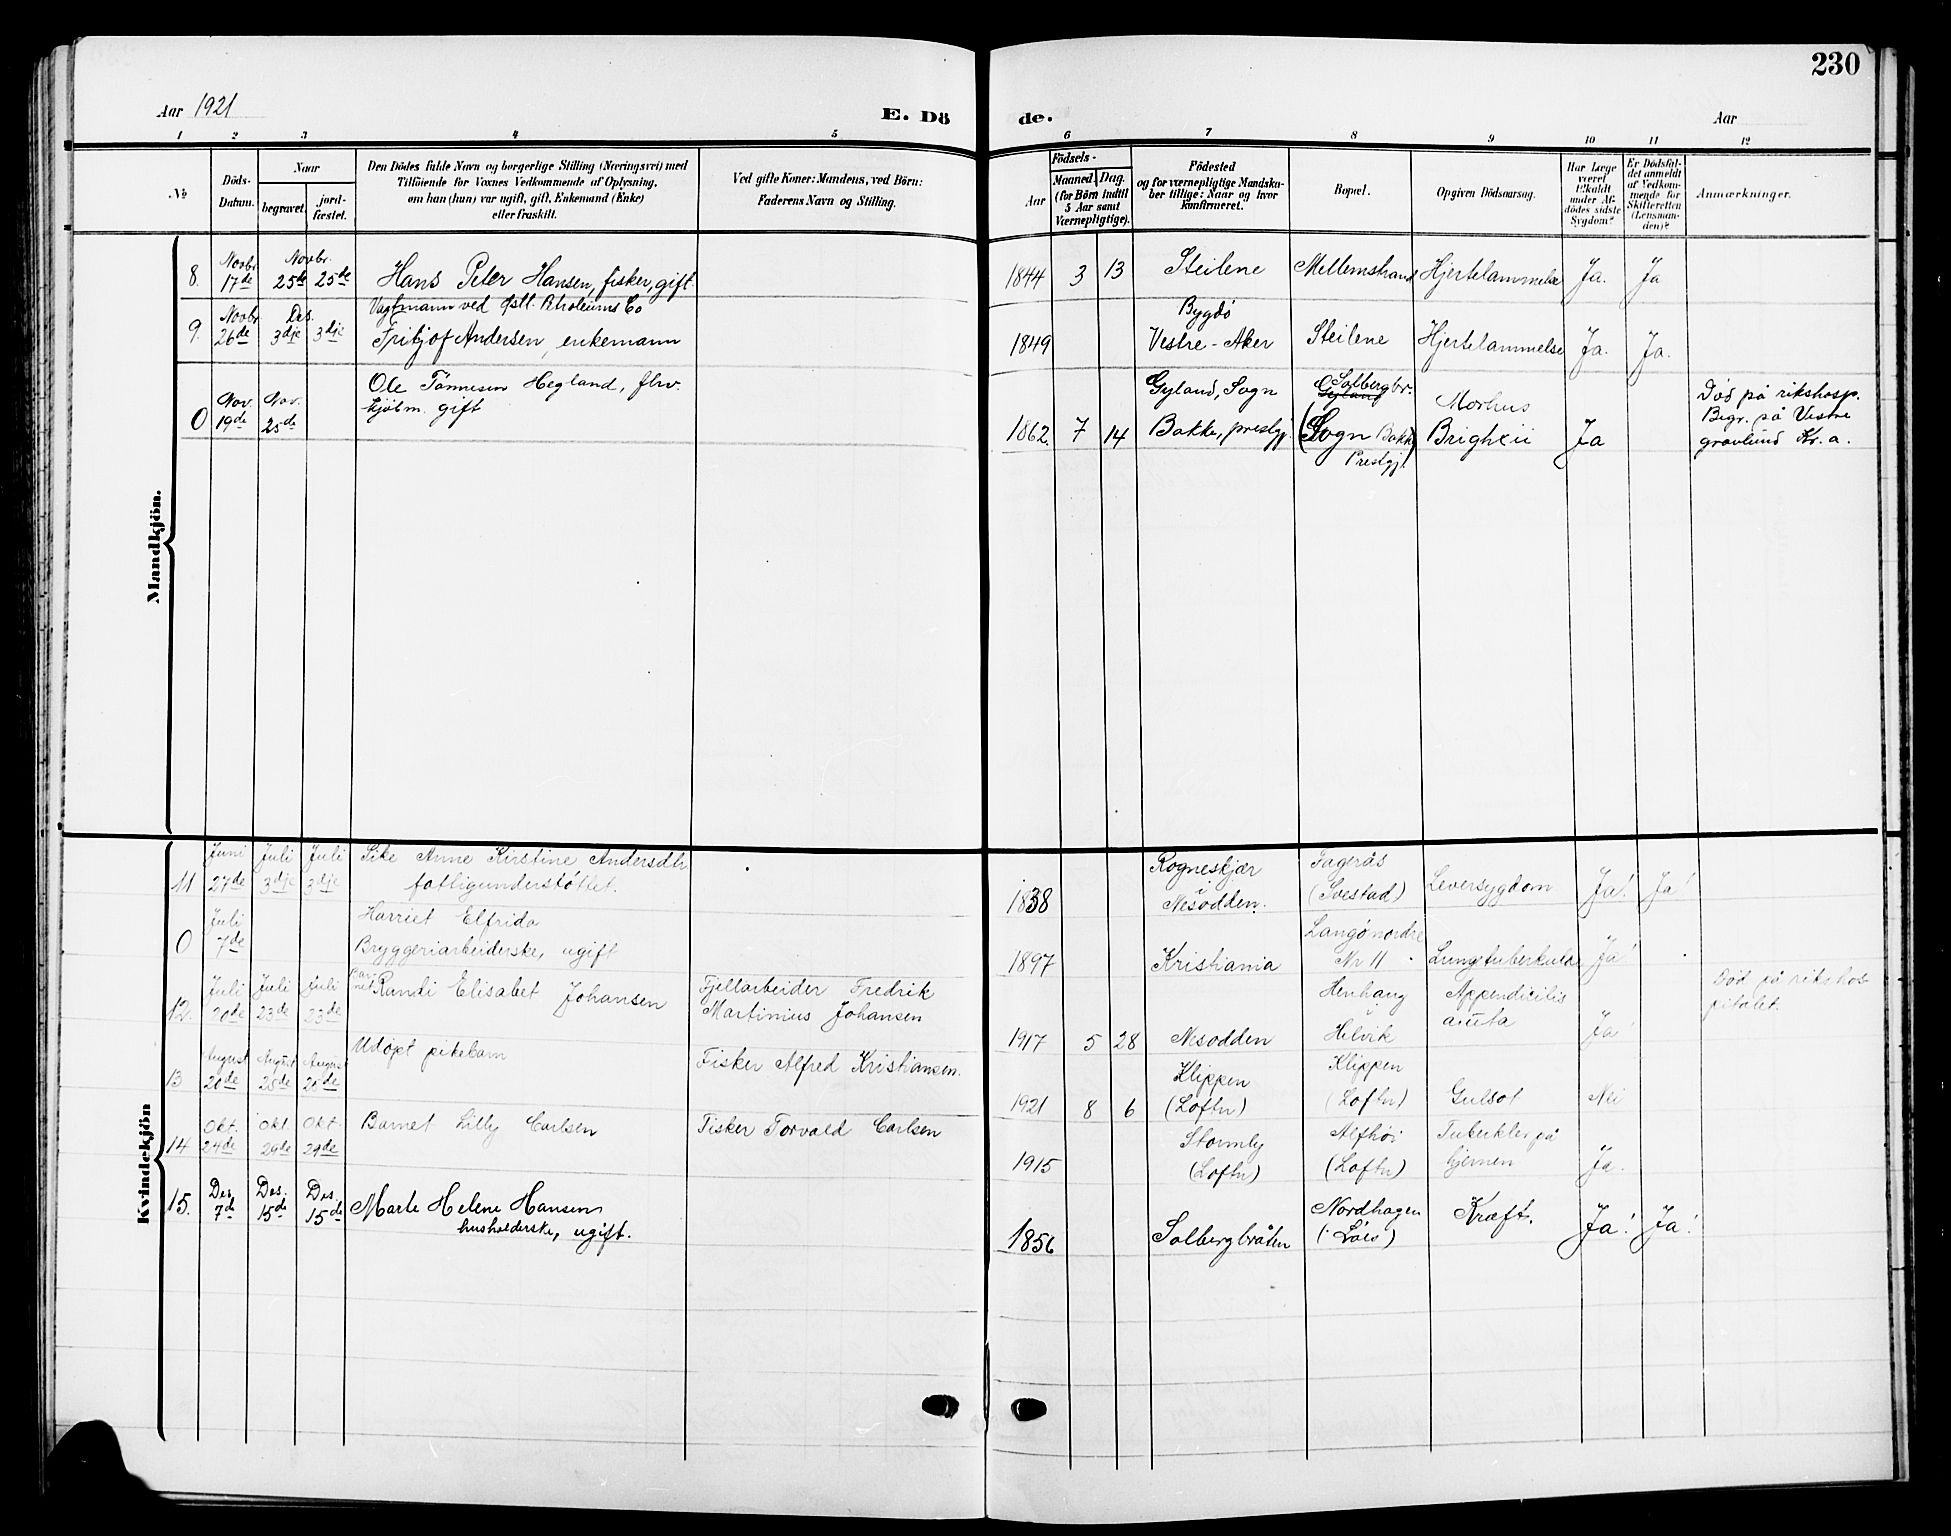 230
Aar 1921
E. Dö
de.
Aar
1 2 3 4 5 6 7 8 9 10 11 12
No
Döds-
Datum.
Naar
begravet.
jord-
fæstet.
Den Dödes fulde Navn og borgerlige Stilling (Næringsvei) med
Tilföiende for Voxnes Vedkommende af Oplysning,
om han (hun) var ugift, gift, Enkemand (Enke)
eller fraskilt.
Ved gifte Koner: Mandens, ved Börn:
Faderens Navn og Stilling.
Födsels-
Aar
Maaned. Dag.
(for Börn indtil
5 Aar samt
Værnepligtige).
Födested
og for værnepligtige Mandska-
ber tillige: Naar og hvor
konfirmeret.
Bopæl.
Opgiven Dödsaarsag.
Har Læge
været
tilkaldt
under Af-
dödes sidste
Sygdom?
Er Dödsfal-
det anmeldt
af Vedkom-
mende for
Skifteretten
(Lensman-
den)?
Anmærkninger.
Mandkjön.
8. Novbr. 17de Novbr. 25de 25de Hans Peter Hansen, fisker, gift. 1844 3 13 Steilene Mellemstrand Hjertelammelse Ja. Ja
9. Novbr 26de Des. 3dje 3dje Vagtmann ved Petroleums Co
Fritjof Andersen, enkemann 1849 Bygdö
Vestre-Aker Steilene Hjertelammelse Ja. Ja.
0 Nov. 19de Nov. 25de Ole Tönnesen Hegland, fhv.
kjöbm. gift 1862. 7 14 Gyland, Sogn
Bakke, prestgj. Solbergbr.
Gyland
(Sogn Bakke
Prestgj. Morbus
Brightii Ja Död på rikshosp.
Begr. på Vestre
gravlund Kr.a.
Kvindekjön
11 Juni 27de Juli 3dje Juli 3dje Pike Anne Kirstine Andersdtr
fattigunderstöttet. 1838 Rogneskjær
i
Nesodden. Fagerås
(Svestad) Leversygdom Ja! Ja!
0 Juli 7de Harriet Elfrida
Bryggeriarbeiderske, ugift 1897 Kristiania Langö nordre
Nr 11 Lungetuberkulose Ja!
12. Juli 20de Juli 23de Juli 23de Barnet Randi Elisabet Johansen Fjellarbeider Fredrik
Martinius Johansen 1917 5 28 Nesodden Henhaug
Helvik Appendicitis
acuta Ja! Död på rikshos-
pitalet.
13 August 20de August 25de August 25de Udöpt pikebarn Fisker Alfred Kristiansen. 1921 8 6 Klippen
(Loftu) Klippen
(Loftu) Gulsot Nei
14 Okt. 24de Okt 29de Okt. 29de Barnet Lilly Carlsen Fisker Torvald Carlsen 1915 Stormly
(Loftu) Alfhöi
(Loftu) Tuberkler på
hjernen Ja.
15. Des. 7de Des. 15de Des. 15de Marte Helene Hansen
husholderske, ugift. 1856 Solbergbråten Nordhagen
(Löes) Kræft. Ja! Ja!